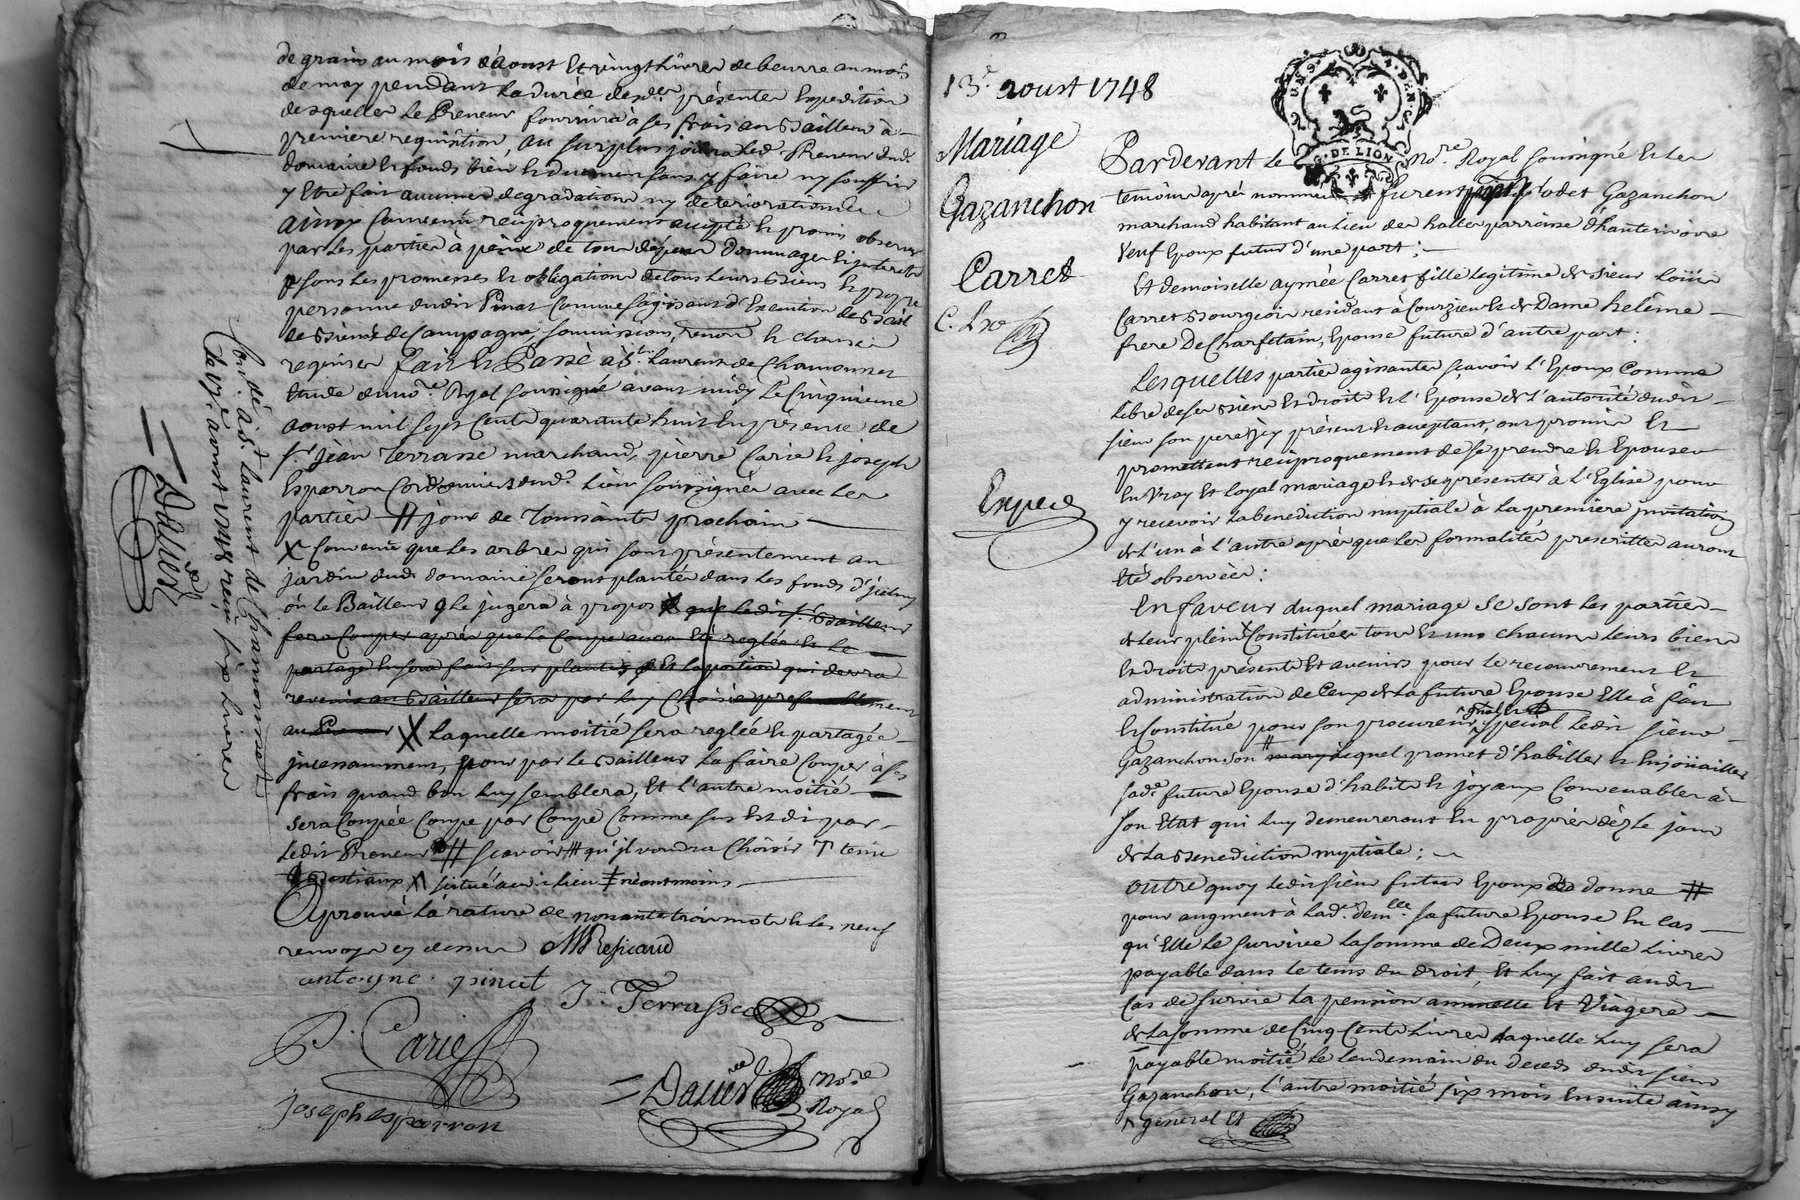 de grains au mois d'aoust Et vingt livres de beurre au mois
de may pendant la durée desd. présentes Expedition
desquelles le Preneur fournira a ses frais au Bailleur à
premiere requisition, au surplus jouira led. Preneur dud.
domaine et fonds bien et duement sans y faire ny souffrir
y Etre fait aucunes degradations ny deteriorations
ainsy Convenu reciproquement accepté et promis observer
par les parties à peine de tous depens dommages et interets
sous les promesses et obligations de tous leurs Biens et propre
personne dudit Pinat Comme s'agissant d'Execution de Bail
de Biens de Campagne, soumissions, renon. et clauses
requises fait et Passé a St. Laurent de Chamousset
Etude du no.re Royal soussigné avant midy le Cinquieme
aoust mil sept Cents quarante huit En présence de
Sr. jean Terrasse marchand, pierre Carie et joseph
Esparron Cordonniers dud. lieu soussignés avec les
parties # jour de Toussaints prochain
X Convenu que les arbres qui sont présentement au
jardin dud. domaine seront plantés dans les fonds d'jceluy
où le Bailleur le jugera à propos X que ledit Sr. Bailleur
fera Couper après que la Coupe aura Eté reglée et le
partage En sera fait sur plantis et la portion qui devra
revenir au Bailleur sera par luy Choisie preferablement
au Preneur X laquelle moitié sera reglée et partagée
jncessamment, pour par le Bailleur la faire Couper à ses
frais quand bon luy semblera, Et l'autre moitié
sera Coupée Coupe par Coupe Comme sus Est dit par
ledit Preneur # scavoir # qu'jl voudra Choisir T tenir
Bestiaux X situé aud. lieu ‡ néantmoins
Aprouvé la rature de nonante trois mots et les neuf
renvoys cy dessus MRepicaud
antoigne pinat
J. Terrasse
P. Carie
josephesparron
Dalier no.re Royal
Con.lé à St. laurent de Chamousset
le 17e. aoust 1748 reçu six livres
Dalier
13e. aoust 1748
Mariage
Gazanchon
Carret
C. Exp
Exped
G. DE LION
Pardevant le no.re Royal soussigné et les
temoins après nommés furent présents Gazanchon
marchand habitant au lieu des halles parroisse d'hauterivoire
Veuf Epoux futur d'une part;
Et demoiselle aymée Carret fille legitime de sieur Loüis
Carret Bourgeois residant à Courzieu et de Dame heleine
frere De Charfetain, Epouse future d'autre part:
Lesquelles parties agissantes sçavoir l'Epoux Comme
libre de ses Biens et Droits Et l'Epouse de l'autorité dudit
sieur son pere jcy présent et acceptant ont promis Et
promettent reciproquement de se prendre et Epouser
En vray Et loyal mariage et de se présenter à l'Eglise pour
y recevoir la benediction nuptiale à la premiere jnvitation
de l'un à l'autre après que les formalités prescrittes auront
Eté observées:
En faveur duquel mariage se sont les parties
de leur plein X Constituées tous et uns chacuns leurs biens
et Droits présents Et avenirs pour le recouvrement et
administration de Ceux de la future Epouse Elle à fait
et Constitué pour son procureur special ledit sieur
Gazanchon son # mary lequel promet d'habiller et Enjoüailler
sad.e future Epouse d'habits et joyaux Convenables à
son Etat qui luy demeureront En propriés dèz le jour
de la Benediction nuptiale;
outre quoy ledit sieur futur Epoux donne #
pour augment à lad.e dem.lle sa future Epouse En cas
qu'Elle le survive la somme de Deux mille livres
payable dans le tems du droit Et luy fait audit
Cas de survie la pension annuelle Et Viagere
de la somme de Cinq Cents livres laquelle luy sera
payable moitié le lendemain du Decès dudit sieur
Gazanchon, l'autre moitié six mois Ensuite ainsy
X general Et